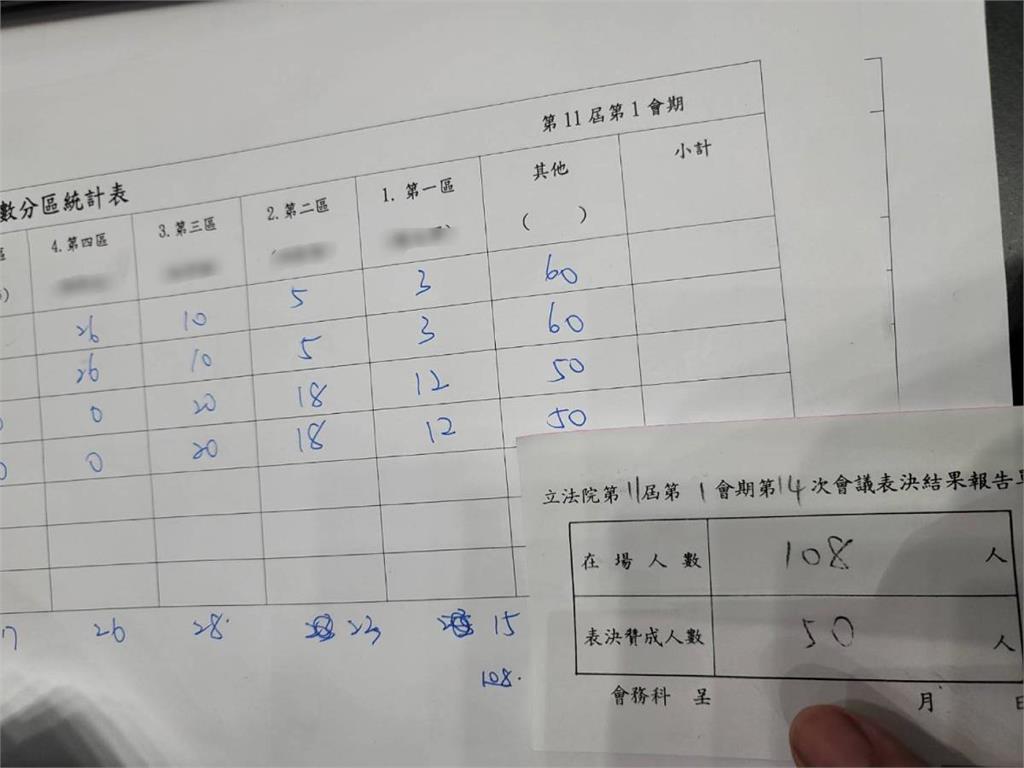 第11屆第1會期
數分區統計表
區 4.第四區 3.第三區 2.第二區 1. 第一區 其他 ( ) 小計
26 10 5 3 60
26 10 5 3 60
0 0 20 18 12 50
0 0 20 18 12 50
26 28 23 15
108
立法院第11屆第1會期第14次會議表決結果報告單
在場人數 108 人
表決贊成人數 50 人
會務科 呈 月 日